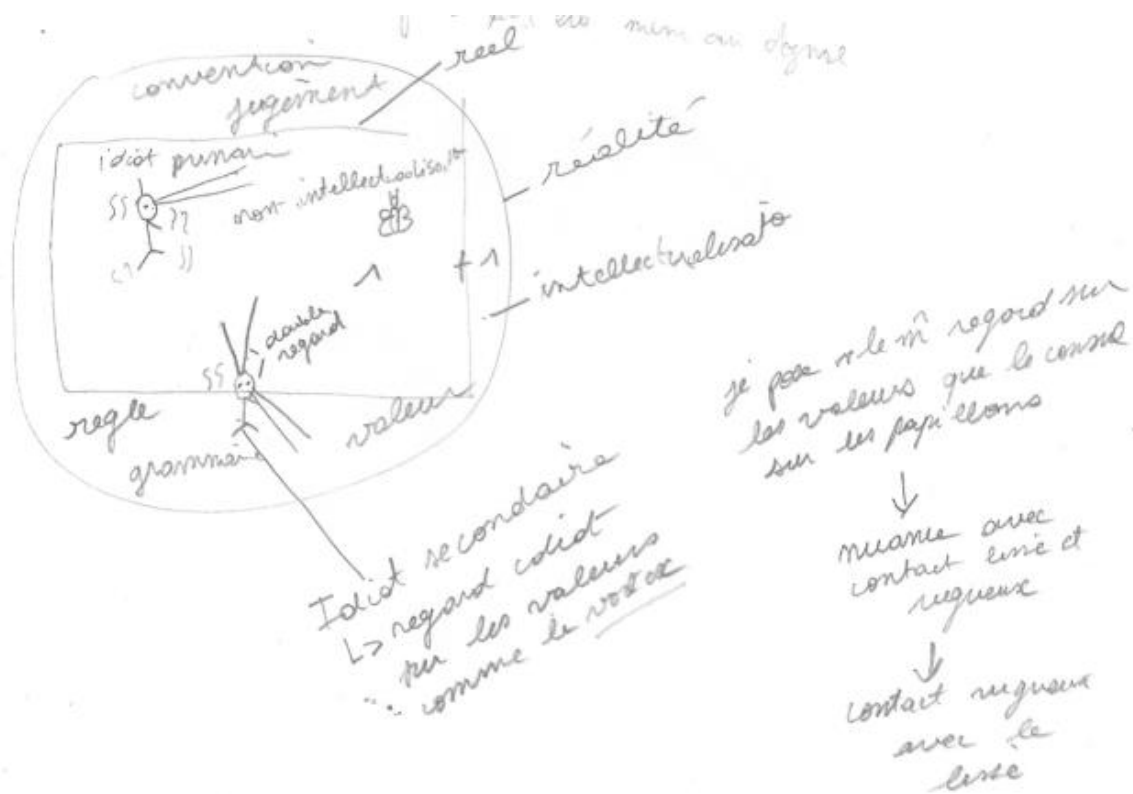 convention
jugement
réel
réalité
intellectualisato
idiot primai
non-intellectualisa
1 + 1
double
regard
regle
grammai
valeur
Idiot secondaire
↳ regard idiot
sur les valeurs
comme le
je pose le m̂ regard sur
les valeurs que le
sur les papillons
↓
nuance avec
contact lissé et
rugueux
↓
contact rugueux
avec le
lissé